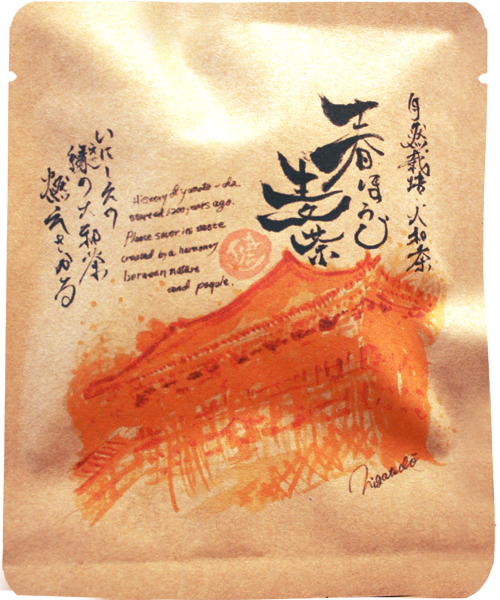 自然栽培 大和茶
春ほうじ
生茶
いにしえの
緑の大和茶
燃えさかる
History of yamato-cha
started 1200 years ago.
Please savor its taste
created by a harmony
between nature
and people.
Nigatsudō